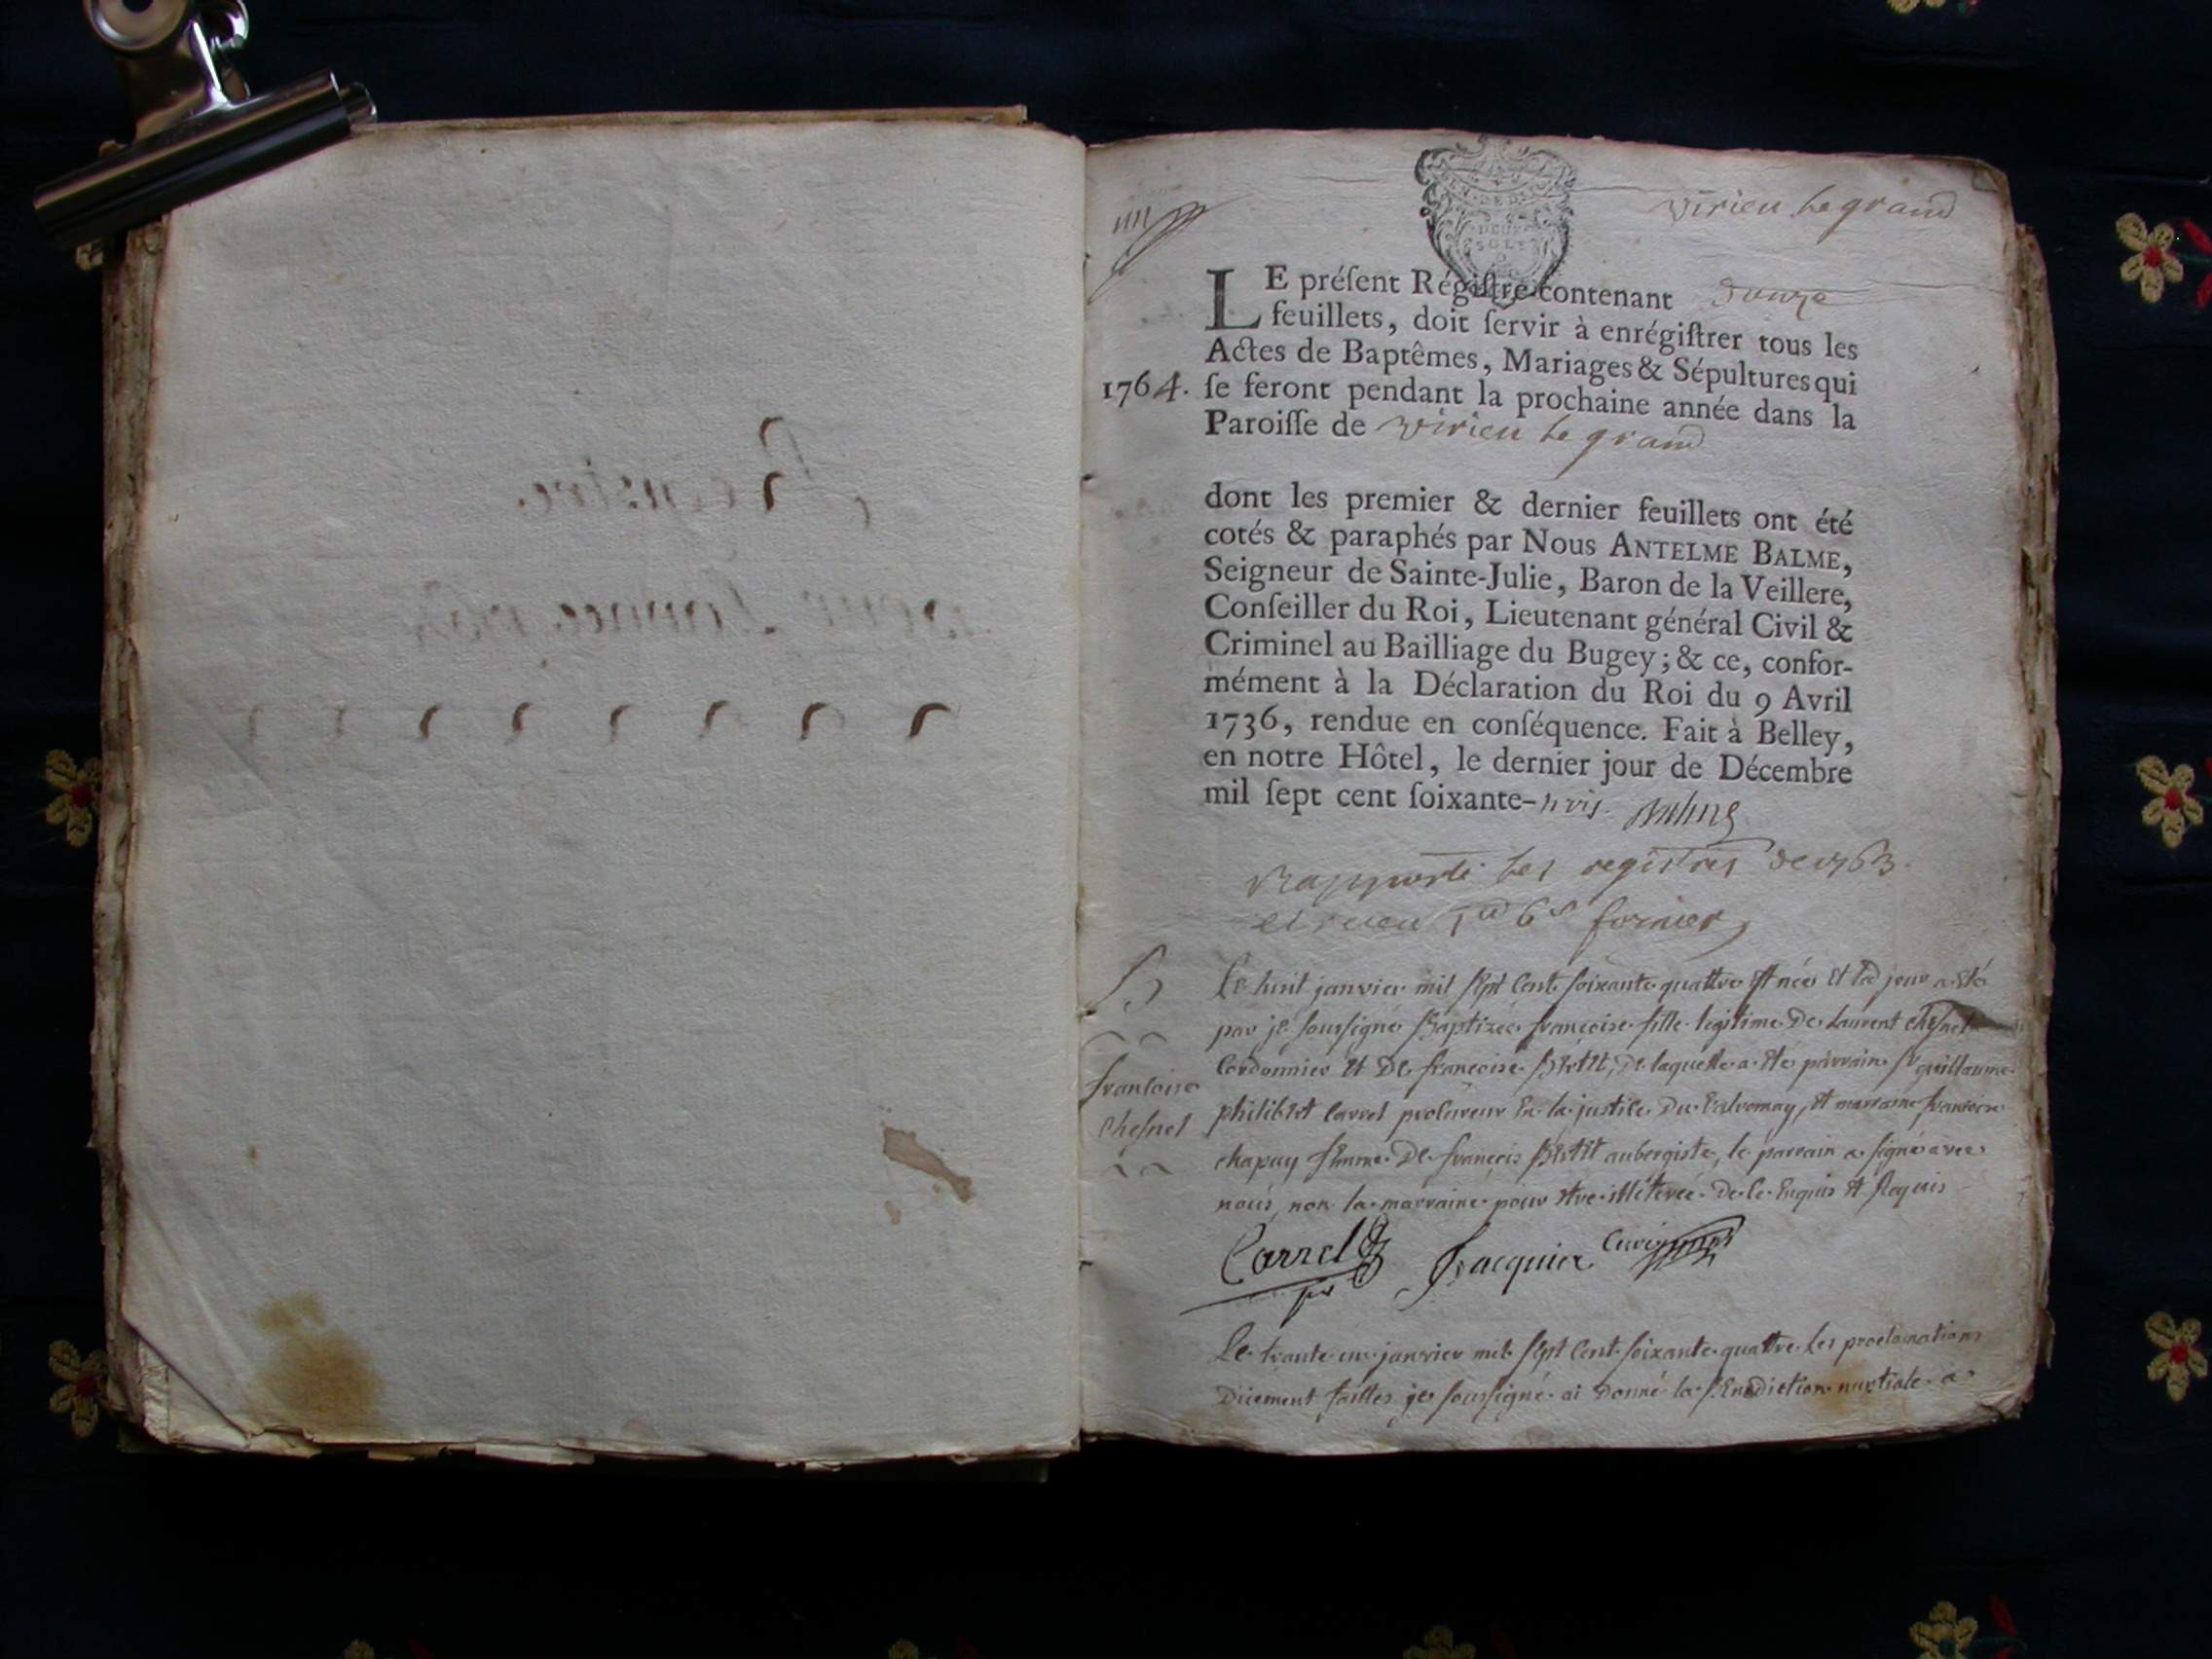 virieu le grand
LE préſent Régiſtre contenant douze
feuillets, doit ſervir à enrégiſtrer tous les
Actes de Baptêmes, Mariages & Sépultures qui
1764. ſe feront pendant la prochaine année dans la
Paroiſſe de virieu le grand
dont les premier & dernier feuillets ont été
cotés & paraphés par Nous ANTELME BALME,
Seigneur de Sainte-Julie, Baron de la Veillere,
Conſeiller du Roi, Lieutenant général Civil &
Criminel au Bailliage du Bugey; & ce, confor-
mément à la Déclaration du Roi du 9 Avril
1736, rendue en conſéquence. Fait à Belley,
en notre Hôtel, le dernier jour de Décembre
mil ſept cent ſoixante-trois. Balme
Rapporté les registres de 1763
et receu
Le huit janvier mil sept cent soixante quattre est née et led jour a eté
par je soussigné Baptizée francoise fille legitime De Laurent chesnel
Cordonnier et De francoise Bertet, De laquelle a eté parrain sr guillaume
philibert Carrel procureur En la justice Du Valromay, et marraine francoise
chapuy femme De françois Bertet aubergiste, le parrain a signé avec
nous, non la marraine pour etre illéterée De ce Enquis et Requis
francoise
chesnel
Carrel Jacquier Curé
Le trante un janvier mil sept cent soixante quattre les proclamations
Duement faittes je soussigné ai Donné la Benediction nuptiale a